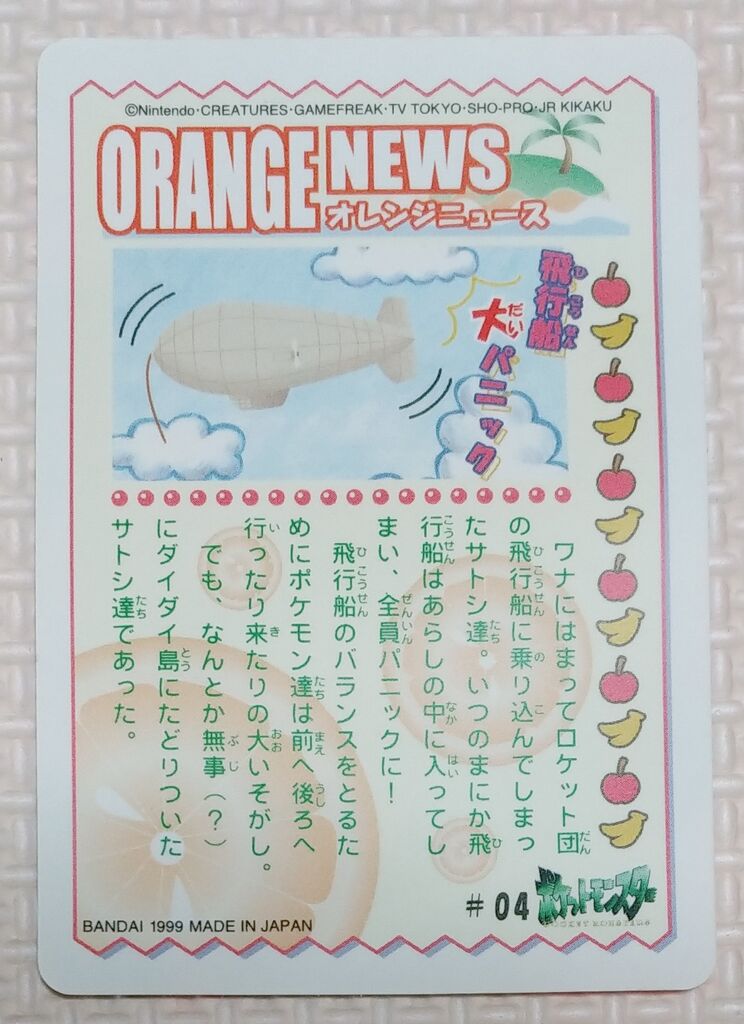 ©Nintendo・CREATURES・GAMEFREAK・TV TOKYO・SHO-PRO・JR KIKAKU
ORANGE NEWS
オレンジニュース
飛行船
大パニック
ワナにはまってロケット団
の飛行船に乗り込んでしまっ
たサトシ達。いつのまにか飛
行船はあらしの中に入ってし
まい、全員パニックに！
飛行船のバランスをとるた
めにポケモン達は前へ後ろへ
行ったり来たりの大いそがし。
でも、なんとか無事（？）
にダイダイ島にたどりついた
サトシ達であった。
#04
ポケットモンスター
BANDAI 1999 MADE IN JAPAN